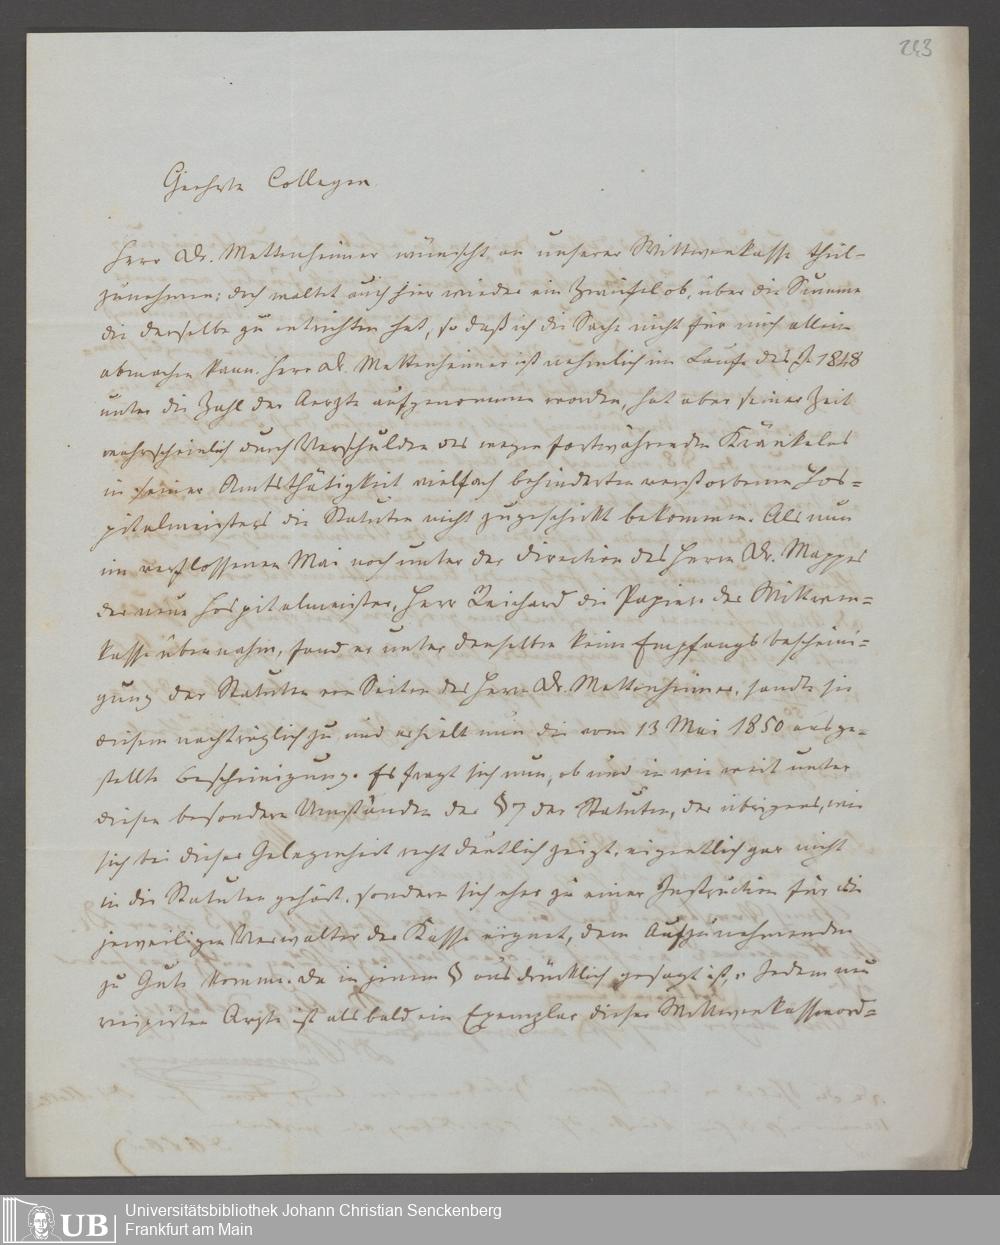 243
Geehrte Collegen.
Herr Dr. Mettenheimer wünscht an unserer Wittwenkasse theil-
zunehmen; doch waltet auch hier wieder ein Zweifel ob, über die Summe
die derselbe zu entrichten hat, so daß ich die Sache nicht für mich allein
abmachen kann. Herr Dr. Mettenheimer ist nehmlich im Laufe des J. 1848
unter die Zahl der Aerzte aufgenommen worden, hat aber seiner Zeit
wahrscheinlich durch Verschulden des wegen fortwährenden Kränkelns
in seiner Amtsthätigkeit vielfach behinderten verstorbenen Hos-
pitalmeisters die Statuten nicht zugeschickt bekommen. Als nun
im verflossenen Mai noch unter der Direction des Herrn Dr. Mappes
der neue Hospitalmeister, Herr Reichard die Papiere der Wittwen-
kasse übernahm, fand er unter denselben keine Empfangsbescheini-
gung der Statuten von Seiten des Herrn Dr. Mettenheimer, sandte sie
diesem nachträglich zu und erhielt nun die vom 13 Mai 1850 ausge-
stellte Bescheinigung. Es fragt sich nun, ob und in wie weit unter
diesen besondern Umständen der §7 der Statuten, der übrigens, wie
sich bei dieser Gelegenheit recht deutlich zeigt, eigentlich gar nicht
in die Statuten gehört, sondern sich eher zu einer Instruction für die
jeweiligen Verwalter der Kasse eignet, dem Aufzunehmenden
zu Gute komme. Da in jenem § ausdrücklich gesagt ist, „Jedem neu
recipirten Arzte ist alsbald ein Exemplar dieser Wittwenkassenord-
UB
Universitätsbibliothek Johann Christian Senckenberg
Frankfurt am Main